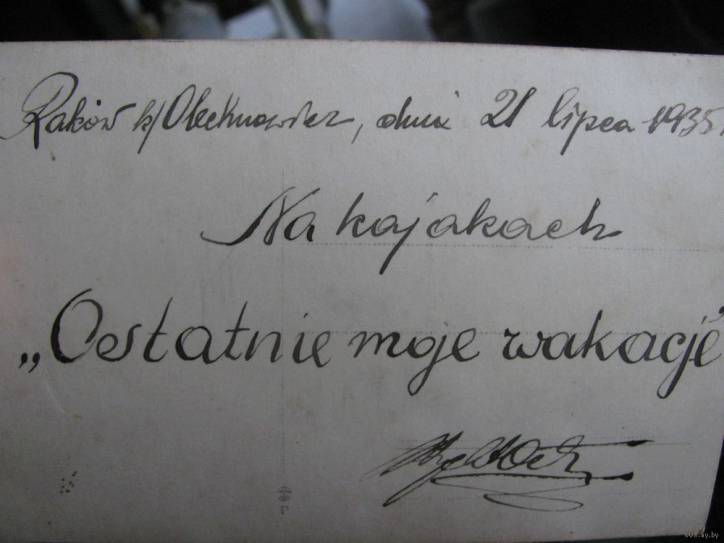 Raków k/Olechnowicz, dnia 21 lipca 1935
Na kajakach
„Ostatnie moje wakacje"